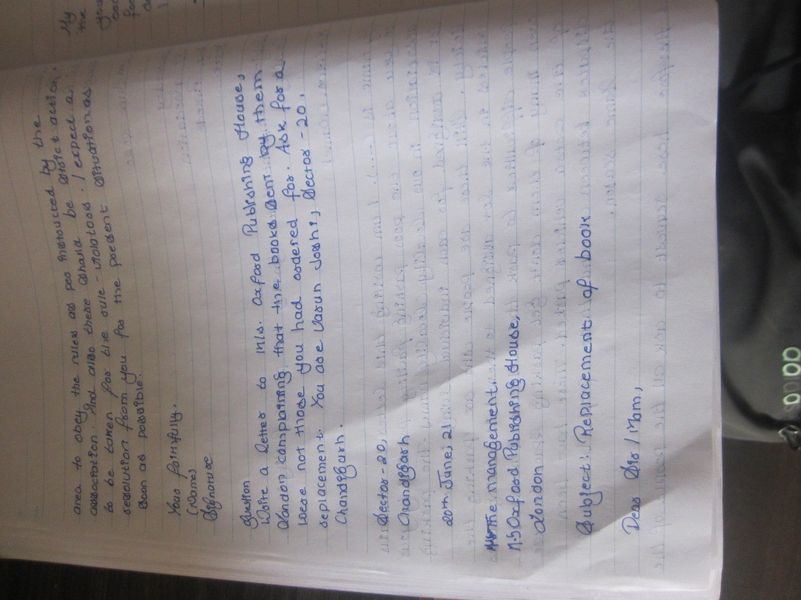 My
the
area to obey the rules as per instructed by the
association. And also there shauld be strict action.
to be taken for the rule-violators. I expect a
resolution from you for the present situation as
soon as possible.
Yours faithfully.
(Name)
Signature
Question
Write a letter to M/s. Oxford Publishing House,
London complaining that the books sent by them
were not those you had ordered for. Ask for a
replacement. You are Varun Joshi, Sector-20,
Chandigarh.
Sector-20,
Chandigarh
20th June, 21
The management,
M.S Oxford Publishing House,
London
Subject: Replacement of book
Dear Sir/Mam,